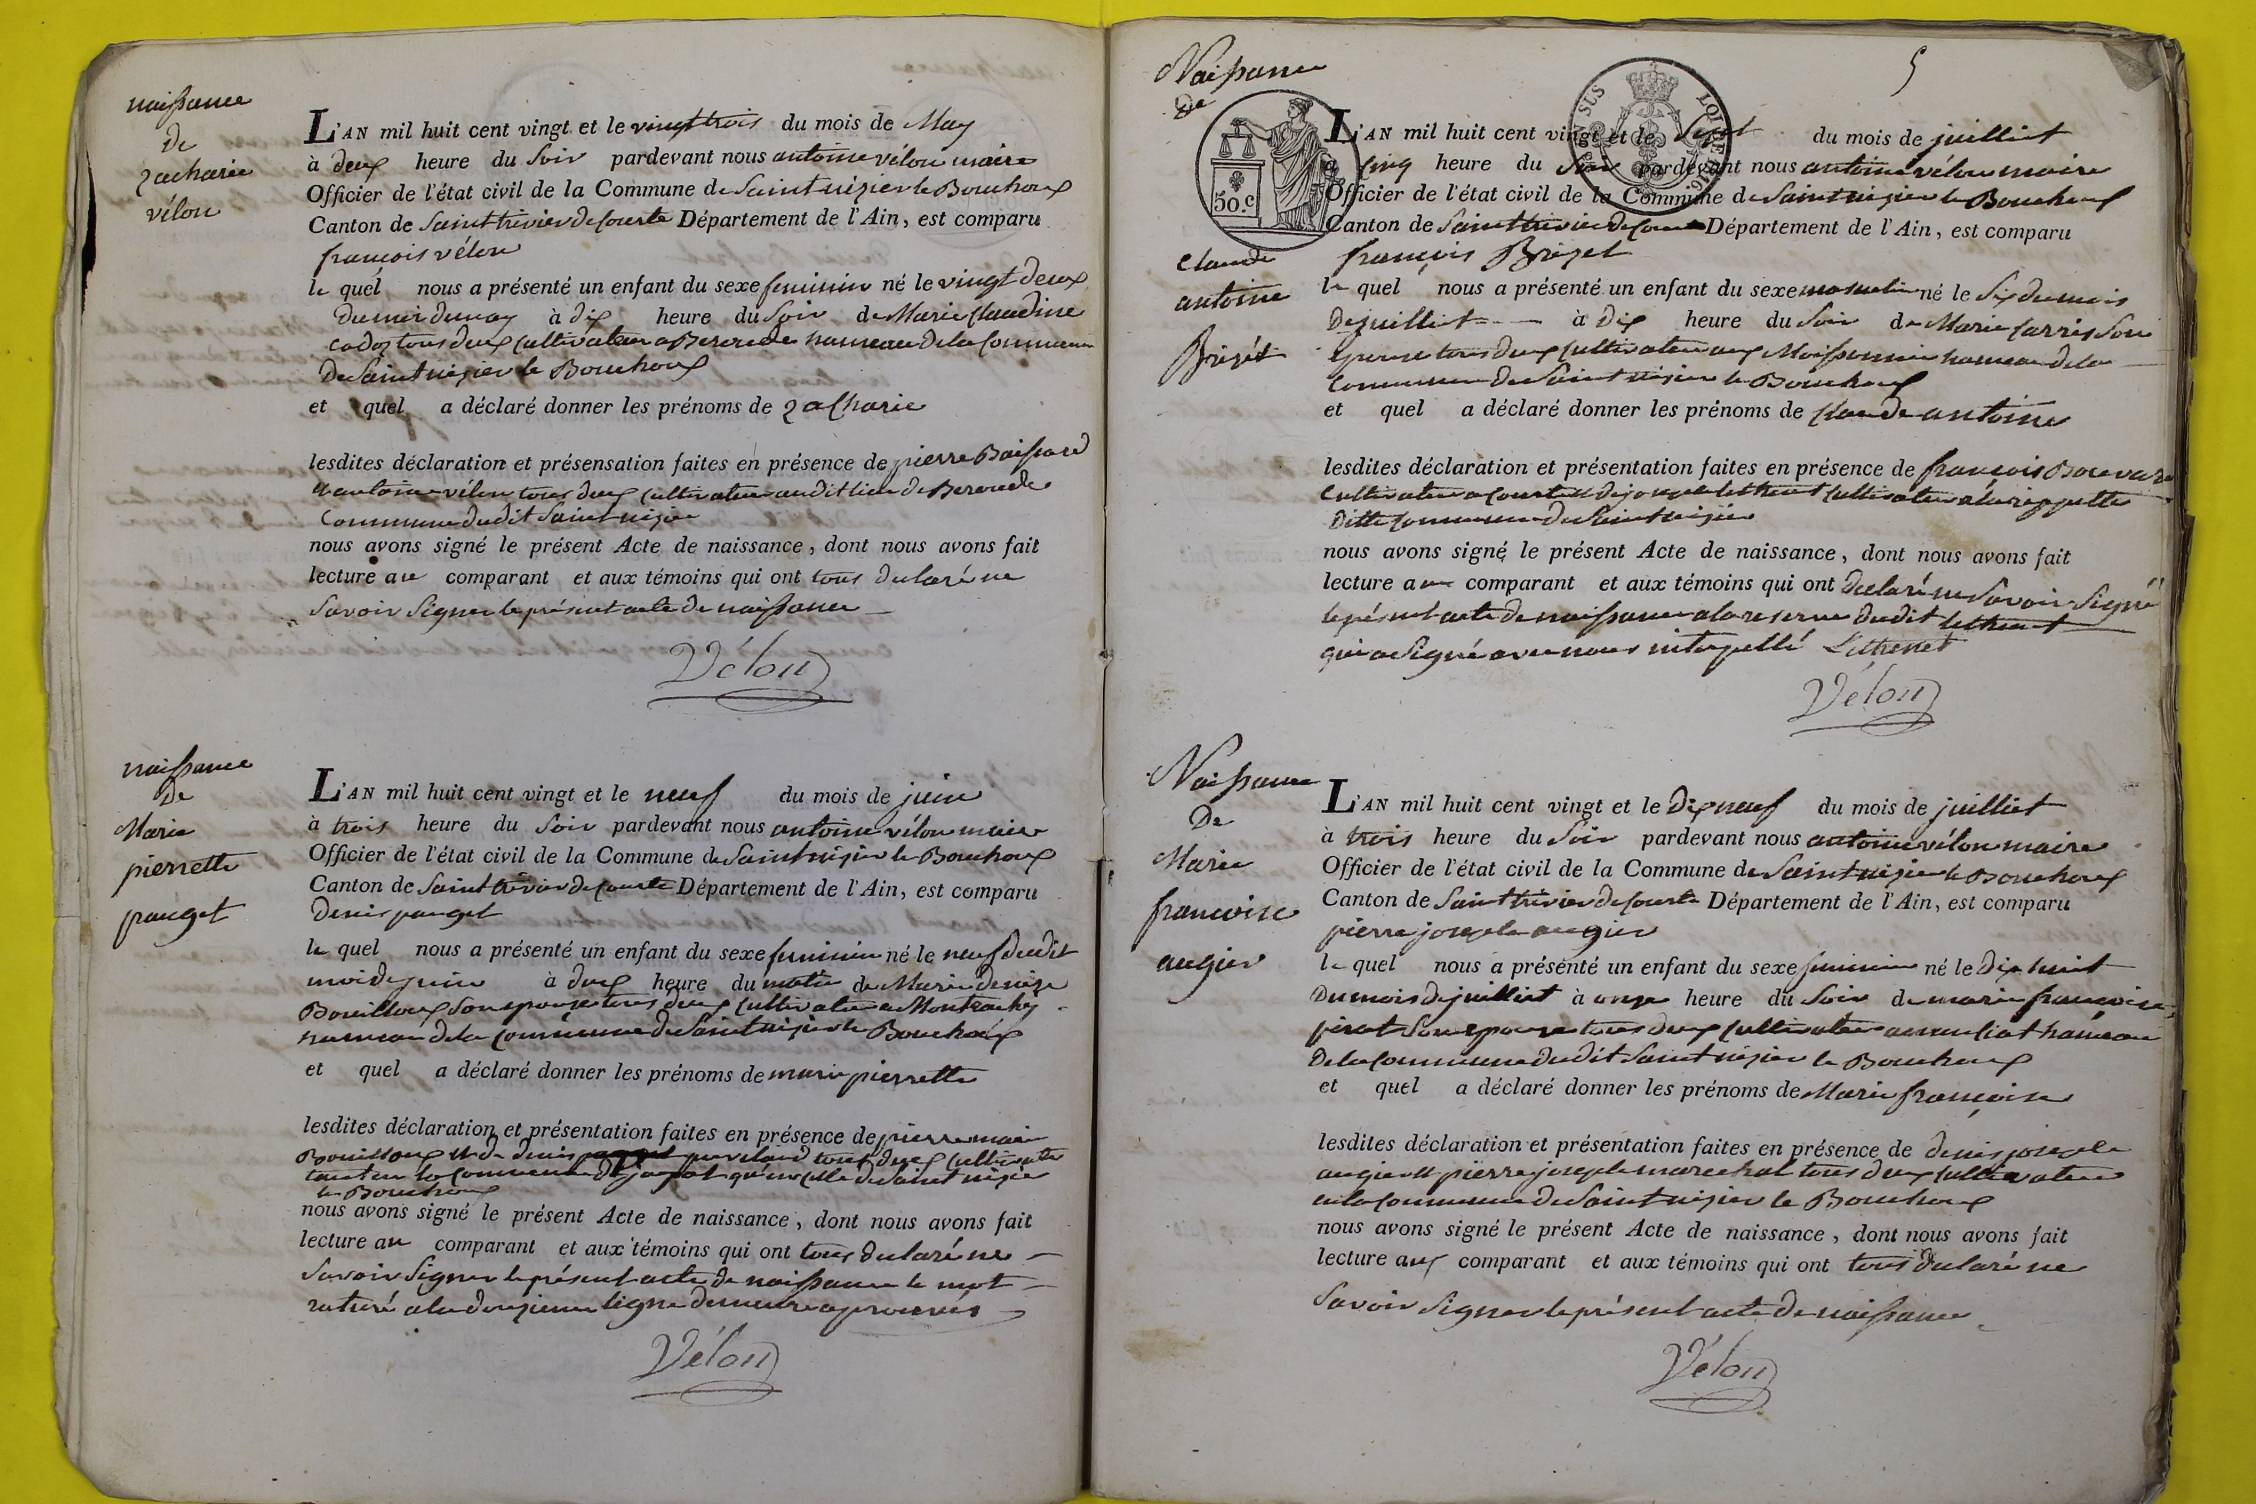 naissance
de
zacharie
vélon
L'AN mil huit cent vingt et le vingt trois du mois de May
à deux heure du Soir pardevant nous antoine vélon maire
Officier de l'état civil de la Commune de Saint nizier le Bouchoux
Canton de Saint trivier de Courte Département de l'Ain, est comparu
francois vélon
le quel nous a présenté un enfant du sexe feminin né le vingt deux
du moi de may à dix heure du Soir de Marie Claudine
tous deux Cultivateur a hameau de la Commune
De Saint nizier le Bouchoux
et quel a déclaré donner les prénoms de zacharie
lesdites déclaration et présensation faites en présence de pierre
et antoine vélon tous deux Cultivateur audit lieu de
Commune dudit Saint nizier
nous avons signé le présent Acte de naissance, dont nous avons fait
lecture au comparant et aux témoins qui ont tous declaré ne
Savoir Signer le présent acte de naissance
Vélon
naissance
De
Marie
pierrette
pauget
L'AN mil huit cent vingt et le neuf du mois de juin
à trois heure du Soir pardevant nous antoine vélon maire
Officier de l'état civil de la Commune de Saint nizier le Bouchoux
Canton de Saint trivier de Courte Département de l'Ain, est comparu
Denis pauget
le quel nous a présenté un enfant du sexe feminin né le neuf dudit
moi de juin à deux heure du matin de Marie denise
Bouilloux Son epouse tous deux Cultivateur a
hameau de la Commune de Saint nizier le Bouchoux
et quel a déclaré donner les prénoms de marie pierrette
lesdites déclaration et présentation faites en présence de pierre marie
Bouilloux et de denis tous deux Cultivateur
tant en la Commune de qu'en celle de Saint nizier
le Bouchoux
nous avons signé le présent Acte de naissance, dont nous avons fait
lecture au comparant et aux témoins qui ont tous declaré ne
Savoir Signer le présent acte de naissance le mot
raturé a la douzieme ligne
Vélon
5
Naissance
de
Claude
antoine
Brizet
50.c
L'AN mil huit cent vingt et le Sept du mois de juilliet
à Cinq heure du Soir pardevant nous antoine vélon maire
Officier de l'état civil de la Commune de Saint nizier le Bouchoux
Canton de Saint trivier de Courte Département de l'Ain, est comparu
françois Brizet
le quel nous a présenté un enfant du sexe masculin né le Six du mois
De juilliet à Dix heure du Soir de Marie Son
Epouse tous deux Cultivateur aux hameau de la
Commune de Saint nizier le Bouchoux
et quel a déclaré donner les prénoms de Claude antoine
lesdites déclaration et présentation faites en présence de françois
Cultivateur a et de joseph lethenet Cultivateur a
Ditte Commune de Saint nizier
nous avons signé le présent Acte de naissance, dont nous avons fait
lecture au comparant et aux témoins qui ont declaré ne Savoir Signé
le présent acte de naissance a la reserve dudit lethenet
qui a Signé avec nous Lethenet
Vélon
Naissance
De
Marie
francoise
augier
L'AN mil huit cent vingt et le Dix neuf du mois de juilliet
à trois heure du Soir pardevant nous antoine vélon maire
Officier de l'état civil de la Commune de Saint nizier le Bouchoux
Canton de Saint trivier de Courte Département de l'Ain, est comparu
pierre joseph augier
le quel nous a présenté un enfant du sexe feminin né le Dix huit
Du mois de juilliet à onze heure du Soir de marie françoise
Son epouse tous deux Cultivateur hameau
De la Commune dudit Saint nizier le Bouchoux
et quel a déclaré donner les prénoms de Marie françoise
lesdites déclaration et présentation faites en présence de denis joseph
augier et pierre joseph marechal tous deux Cultivateur
en la Commune de Saint nizier le Bouchoux
nous avons signé le présent Acte de naissance, dont nous avons fait
lecture aux comparant et aux témoins qui ont tous declaré ne
Savoir Signer le présent acte de naissance
Vélon